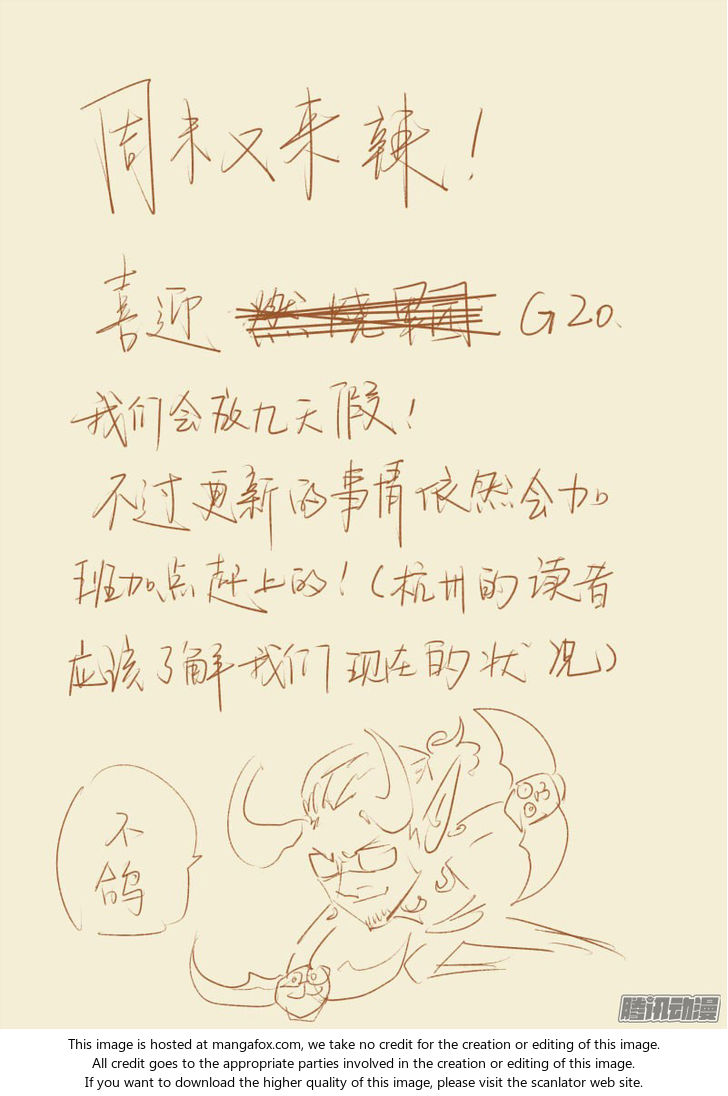 周末又来辣！
喜迎燃烧军团 G20、
我们会放九天假！
不过更新的事情依然会加
班加点赶上的！（杭州的读者
应该了解我们现在的状况）
不
鸽
腾讯动漫
This image is hosted at mangafox.com, we take no credit for the creation or editing of this image.
All credit goes to the appropriate parties involved in the creation or editing of this image.
If you want to download the higher quality of this image, please visit the scanlator web site.